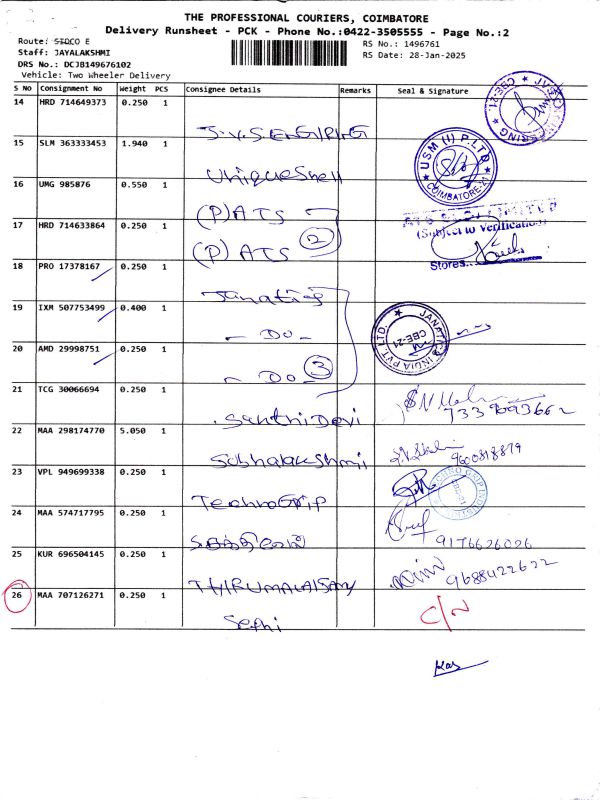 THE PROFESSIONAL COURIERS, COIMBATORE
Delivery Runsheet - PCK - Phone No.:0422-3505555 - Page No.:2
Route: SIDCO E
RS No.: 1496761
Staff: JAYALAKSHMI
RS Date: 28-Jan-2025
DRS No.: DCJB149676102
Vehicle: Two Wheeler Delivery
S No Consignment No Weight PCS Consignee Details Remarks Seal & Signature
14 HRD 714649373 0.250 1
15 SLM 363333453 1.940 1
USM (I) P.LTD COIMBATORE-21
16 UMG 985876 0.550 1 UniqueShell
(P) ATS
17 HRD 714633864 0.250 1 (Subject to Verification)
(P) ATS 2
Stores
18 PRO 17378167 0.250 1
Janatics
19 IXM 507753499 0.400 1
- Do -
JANATICS INDIA PVT. LTD. CBE-21
20 AMD 29998751 0.250 1
- Do - 3
21 TCG 30066694 0.250 1
Santhi Devi 7339693662
22 MAA 298174770 5.050 1
Subhalakshmi 9600818879
23 VPL 949699338 0.250 1
TechnoGrip
24 MAA 574717795 0.250 1
9176626026
25 KUR 696504145 0.250 1
THIRUMALAISAMY 9688422622
26 MAA 707126271 0.250 1 C/N
Sephi